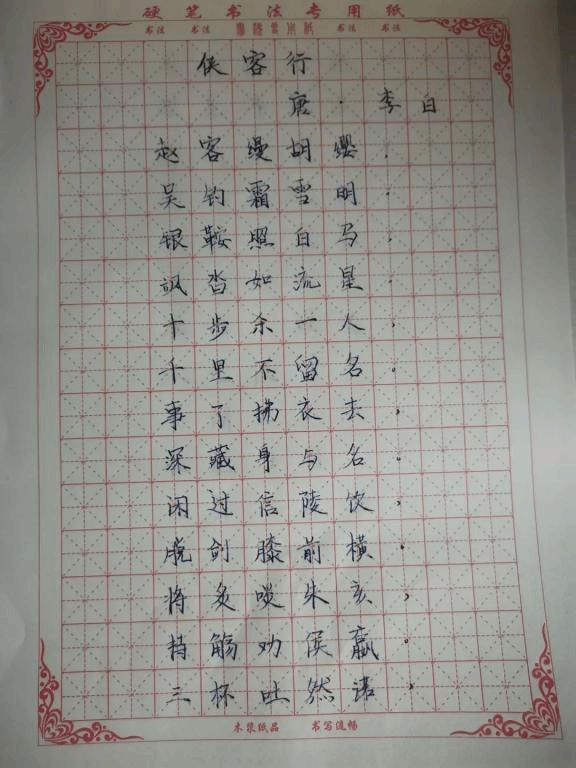 硬笔书法专用纸
书法 书法 书法 书法
侠客行
唐·李白
赵客缦胡缨，
吴钓霜雪明。
银鞍照白马，
飒沓如流星。
十步杀一人，
千里不留名。
事了拂衣去，
深藏身与名。
闲过信陵饮，
脱剑膝前横。
将炙啖朱亥，
持觞劝侯嬴。
三杯吐然诺，
木浆纸品 书写流畅